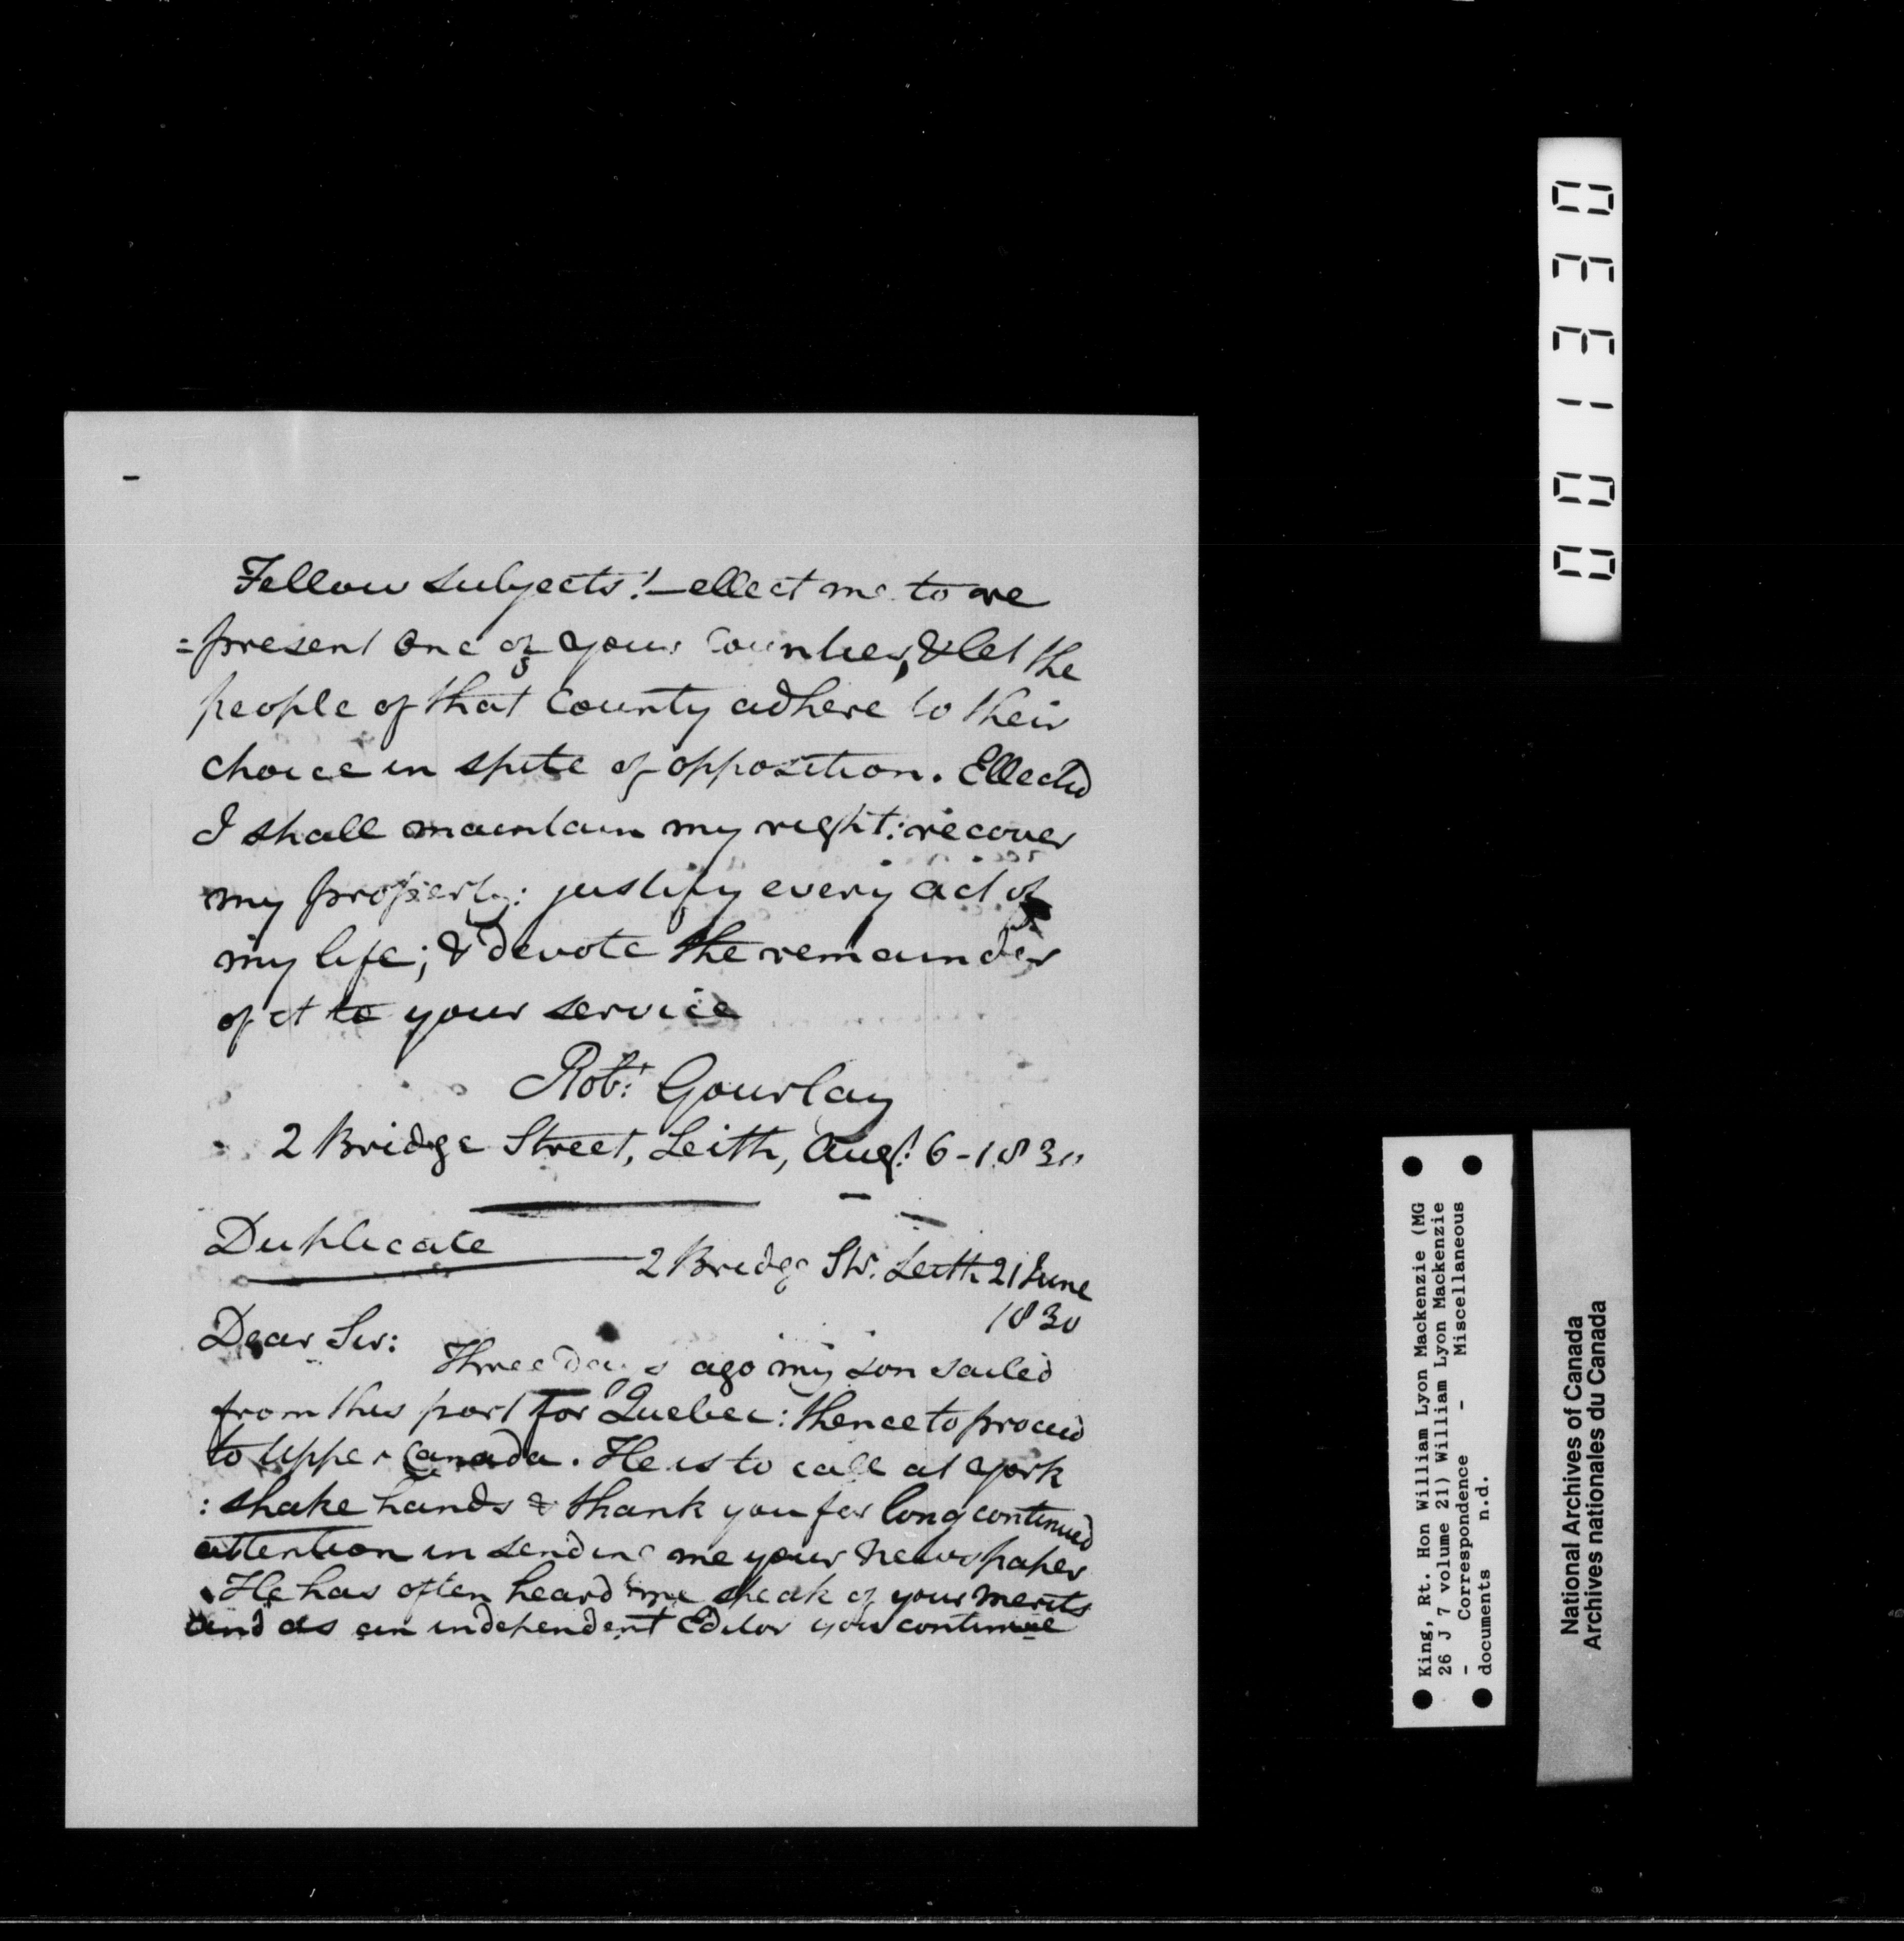 Fellow subjects!—ellect me to re
=present one of your Counties, & let the
people of that County adhere to their
choice in spite of opposition. Ellected
I shall maintain my right: recover
my property: justify every act of
my life; & devote the remainder
of it to your service
Robt: Gourlay
2 Bridge Street, Leith, Augt. 6-1830
Duplicate
2 Bridge Str. Leith 21 June
1830
Dear Sir:
Three days ago my son sailed
from this port for Quebec: thence to proceed
to Upper Canada. He is to call at York
: shake hands & thank you for long continued
attention in sending me your newspaper
. He has often heard me speak of your merits
and as an independent Editor you continue
001330
King, Rt. Hon William Lyon Mackenzie (MG
26 J 7 volume 21) William Lyon Mackenzie
- Correspondence - Miscellaneous
documents n.d.
National Archives of Canada
Archives nationales du Canada